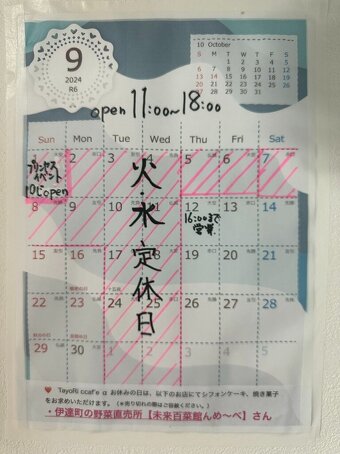 9
2024
R6
10 October
S M T W T F S
1 2 3 4 5
6 7 8 9 10 11 12
13 14 15 16 17 18 19
20 21 22 23 24 25 26
27 28 29 30 31
open 11:00~18:00
Sun Mon Tue Wed Thu Fri Sat
1 2 3 4 5 6 7
プリンセス
イベント
10じopen
8 9 10 11 12 13 14
16:00まで
営業
15 16 17 18 19 20 21
敬老の日
22 23 24 25 26 27 28
秋分の日
振替休日
29 30
火・水定休日
♥ TayoRi ccaFe α お休みの日は、以下のお店にてシフォンケーキ、焼き菓子
をお求めいただけます。(※売り切れの際はご容赦ください。)
・伊達町の野菜直売所【未来百菜館んめ～べ】さん